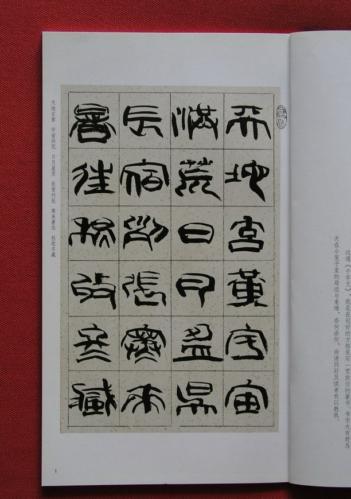 天地玄黃宇宙
洪荒日月盈昃
辰宿列張寒來
暑往秋收冬藏
天地玄黄 宇宙洪荒 日月盈昃 辰宿列张 寒来暑往 秋收冬藏
1